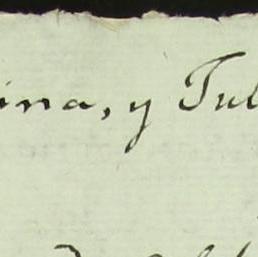 ina, y Tul